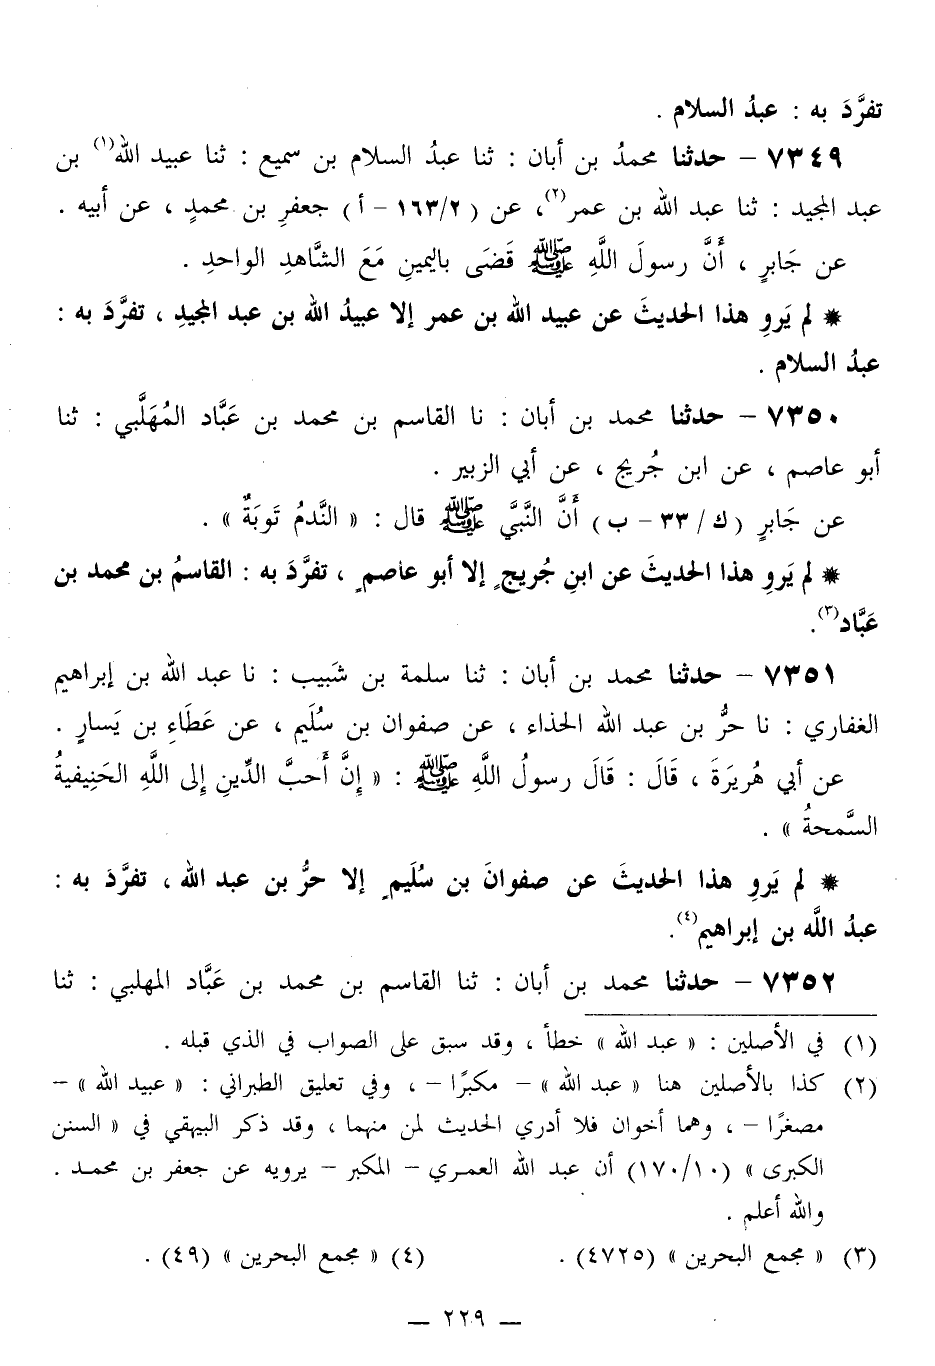 تفرَّدَ به : عبدُ السلام .
٧٣٤٩ – حدثنا محمدُ بن أبان : ثنا عبدُ السلام بن سميع : ثنا عبيد الله(١) بن
عبد المجيد : ثنا عبد الله بن عمر(٢)، عن (١٦٣/٢ – أ) جعفرِ بن محمدٍ ، عن أبيه .
عن جَابرٍ ، أَنَّ رسولَ اللَّهِ ﷺ قَضَى باليمينِ مَعَ الشَّاهدِ الواحدِ .
* لم يَروِ هذا الحديثَ عن عبيد الله بن عمر إلا عبيدُ الله بن عبد المجيدِ ، تفرَّدَ به :
عبدُ السلام .
٧٣٥٠ – حدثنا محمد بن أبان : نا القاسم بن محمد بن عَبَّاد المُهَلَّبي : ثنا
أبو عاصم ، عن ابن جُريج ، عن أبي الزبير .
عن جَابرٍ (ك/ ٣٣ – ب) أَنَّ النَّبيَّ ﷺ قال : « النَّدمُ تَوبَةٌ » .
* لم يَروِ هذا الحديثَ عن ابنِ جُريجٍ إلا أبو عاصمٍ ، تفرَّدَ به : القاسمُ بن محمد بن
عَبَّاد(٣).
٧٣٥١ – حدثنا محمد بن أبان : ثنا سلمة بن شَبيب : نا عبد الله بن إبراهيم
الغفاري : نا حرُّ بن عبد الله الحذاء ، عن صفوان بن سُلَيم ، عن عَطَاءِ بن يَسارٍ .
عن أبي هُريرَةَ ، قَالَ : قَالَ رسولُ اللَّهِ ﷺ : « إِنَّ أَحبَّ الدِّينِ إِلى اللَّهِ الحَنِيفيةُ
السَّمحةُ » .
* لم يَروِ هذا الحديثَ عن صفوانَ بن سُلَيمٍ إلا حرُّ بن عبد الله ، تفرَّدَ به :
عبدُ اللَّه بن إبراهيم(٤).
٧٣٥٢ – حدثنا محمد بن أبان : ثنا القاسم بن محمد بن عَبَّاد المهلبي : ثنا
(١) في الأصلين : « عبد الله » خطأ ، وقد سبق على الصواب في الذي قبله .
(٢) كذا بالأصلين هنا « عبد الله » – مكبرًا – ، وفي تعليق الطبراني : « عبيد الله » –
مصغرًا – ، وهما أخوان فلا أدري الحديث لمن منهما ، وقد ذكر البيهقي في « السنن
الكبرى » (١٧٠/١٠) أن عبد الله العمري – المكبر – يرويه عن جعفر بن محمد .
والله أعلم .
(٣) « مجمع البحرين » (٤٧٢٥) . (٤) « مجمع البحرين » (٤٩) .
— ٢٢٩ —